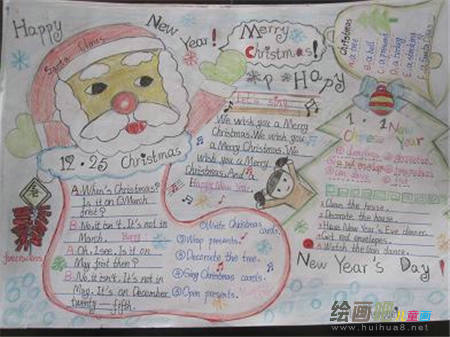 Happy New Year!
Merry Christmas!
Santa Claus
Happy
Christmas
A. a tree
B. a bell
C. a present
E. a stocking
12.25 Christmas
A. When's Christmas?
Is it on March
first?
B. No, it isn't. It's not in
March.
A. Oh, I see. Is it on
May first then?
B. No, it isn't. It's not in
May. It's on December
twenty-fifth.
① Write Christmas
cards.
② Wrap presents.
③ Decorate the tree.
④ Sing Christmas cards.
⑤ Open presents.
Let's sing
We wish you a Merry
Christmas. We wish
you a Merry Christmas.
We wish you a Merry
Christmas. And
Happy New Year.
1.1 New
Chinese Year
Clean the house.
Decorate the house.
Have New Year's Eve dinner.
Get red envelopes.
Watch the lion dance.
New Year's Day!
firecrackers
绘画吧 儿童画
www.huihua8.net